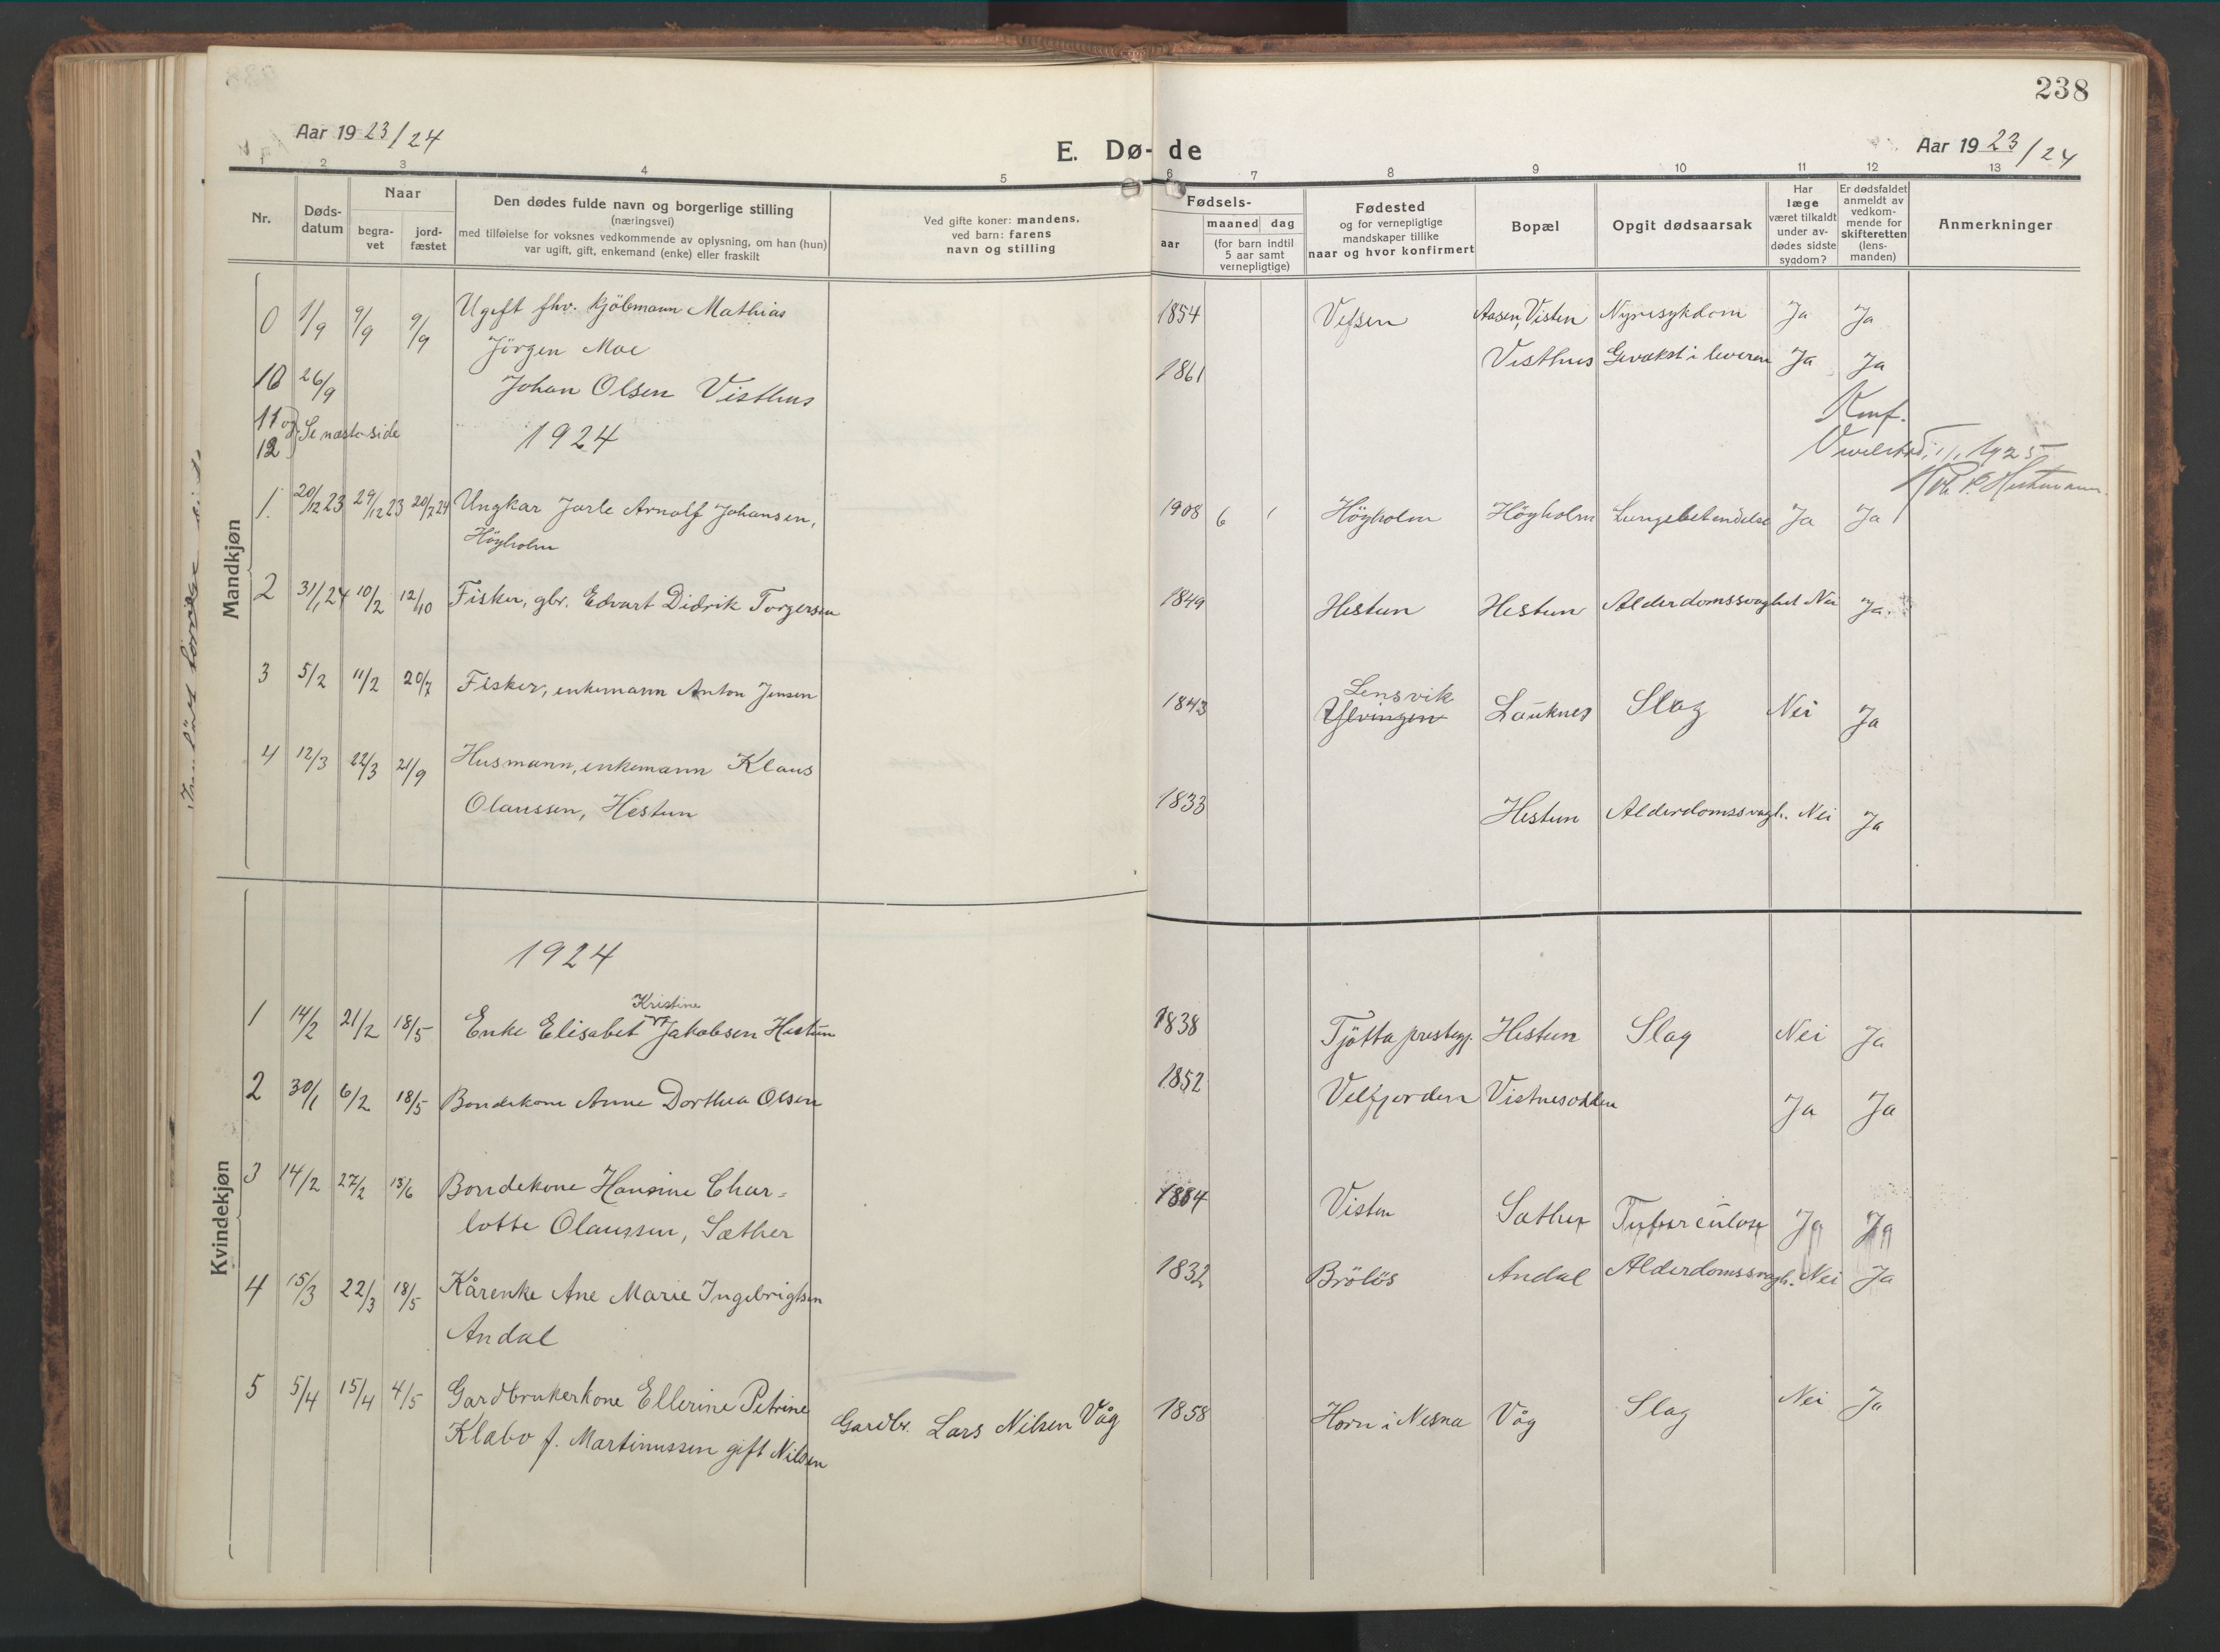 238
Aar 1923/24
E. Dø- de
Aar 1923/24
1 2 3 4 5 6 7 8 9 10 11 12 13
Nr.
Døds-
datum
Naar
begra-
vet
jord-
fæstet
Den dødes fulde navn og borgerlige stilling
(næringsvei)
med tilføielse for voksnes vedkommende av oplysning, om han (hun)
var ugift, gift, enkemand (enke) eller fraskilt
Ved gifte koner: mandens,
ved barn: farens
navn og stilling
Fødsels-
aar
maaned dag
(for barn indtil
5 aar samt
vernepligtige)
Fødested
og for vernepligtige
mandskaper tillike
naar og hvor konfirmert
Bopæl
Opgit dødsaarsak
Har
læge
været tilkaldt
under av-
dødes sidste
sygdom?
Er dødsfaldet
anmeldt av
vedkom-
mende for
skifteretten
(lens-
manden)
Anmerkninger
Mandkjøn
1/9 9/9 9/9 Ugift fhv. Kjöbmann Mathias 1854 Vefsen Aasen, Visten Nyresykdom Ja Ja
Jörgen Moe
10 26/9 Johan Olsen Visthus 1861 Visthus Gevækst i leveren Ja Ja
11 og 12 Se næste side
1924
Konf.
1925
1. 20/12 23 29/12 23 20/7 24 Ungkar Jarle Arnolf Johansen, 1908 6 1 Höyholm Höyholm Lungebetendelse Ja Ja
Höyholm
2 31/1 24 10/2 12/10 Fisker, gbr. Edvart Didrik Torgersen 1849 Hestun Hestun Alderdomssvaghet Nei Ja.
3 5/2 11/2 20/7 Fisker, enkemann Anton Jensen 1843 Lensvik Ylvingen Lauknes Slag Nei Ja
4 12/3 22/3 21/9 Husmann, enkemann Klaus
Olaussen, Hestun 1833 Hestun Alderdomssvagh. Nei Ja
Kvindekjøn
1924
1 14/2 21/2 18/5 Enke Elisabet Kristine Jakobsen Hestun 1838 Tjötta prestegj. Hestun Slag Nei Ja
2 30/1 6/2 18/5 Bondekone Anne Dorthea Olsen 1852 Velfjorden Vistnesodden Ja Ja
3 14/2 27/2 13/6 Bondekone Hansine Char-
lotte Olaussen, Sæther 1884 Visten Sæther Tuberculose Ja Ja
4 15/3 22/3 18/5 Kårenke Ane Marie Ingebrigtsen 1832 Brölös Andal Alderdomssvagh. Nei Ja
Andal
5 5/4 15/4 4/5 Gardbrukerkone Ellerine Petrine
Klæbo f. Martinussen gift Nilsen Gardbr. Lars Nilsen Våg 1858 Horn i Nesna Våg Slag Nei Ja